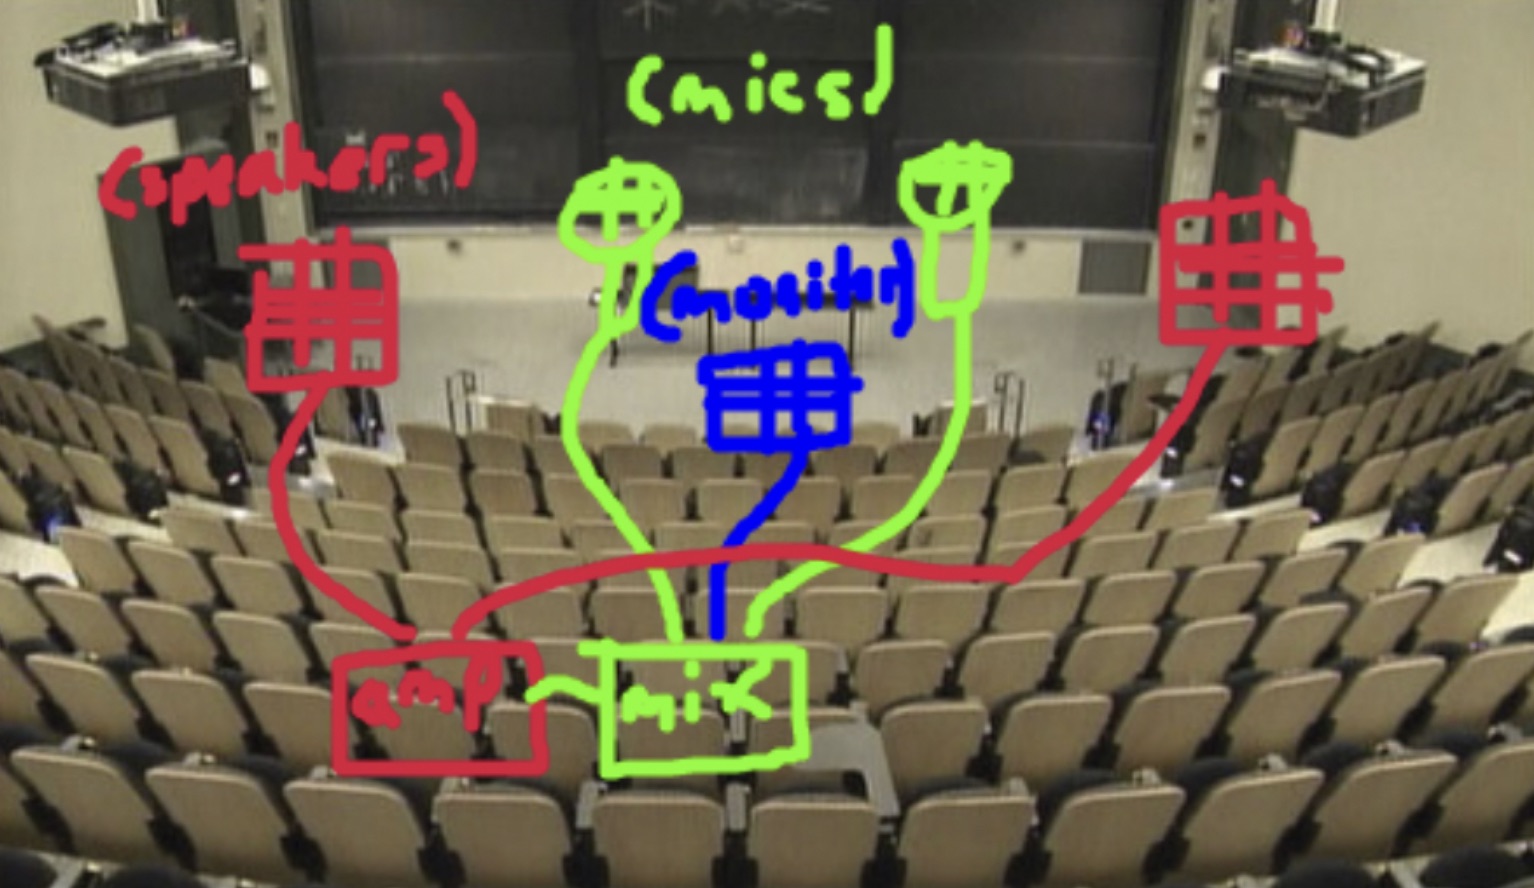 (mics)
(speakers)
(monitor)
amp
mix